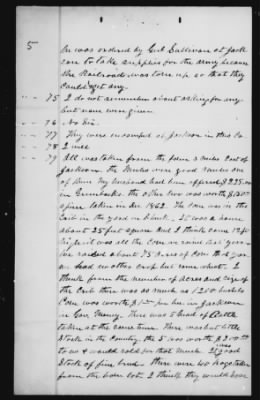 5
He was ordered by Genl Sullivan at Jack
son to take supplies for the army because
the Railroads was torn up so that they
could get any
75 I do not remember about asking for any
but none were given
76 No Sir.
77 They were encamped at Jackson in this Co
78 I was
79 All was taken from the farm 3 miles East of
Jackson. The Mules were good mules one
of them my husband had been offered $225.00
in Greenbacks the other two was worth $150.00
apiece taken in Dec 1862. The corn was in the
Crib in the yard in bulk. It was a house
about 25 feet square and I think some 12 ft
high it was all the Corn we raised last year
We raised about 75 Acres of Corn that year
on
think from the number of acres and size of
the Crib there was as much as 1250 bush
Corn was worth $1.00 per bu in Jackson
in Gov Money. There was 5 head of Cattle
taken at the same time. There was but little
Stock in the Country. the 5 was worth
to us &amp; would sold for that much. It was good
Stock of fine breed. There were 40 hogs taken
from the barn lot. I think they would have